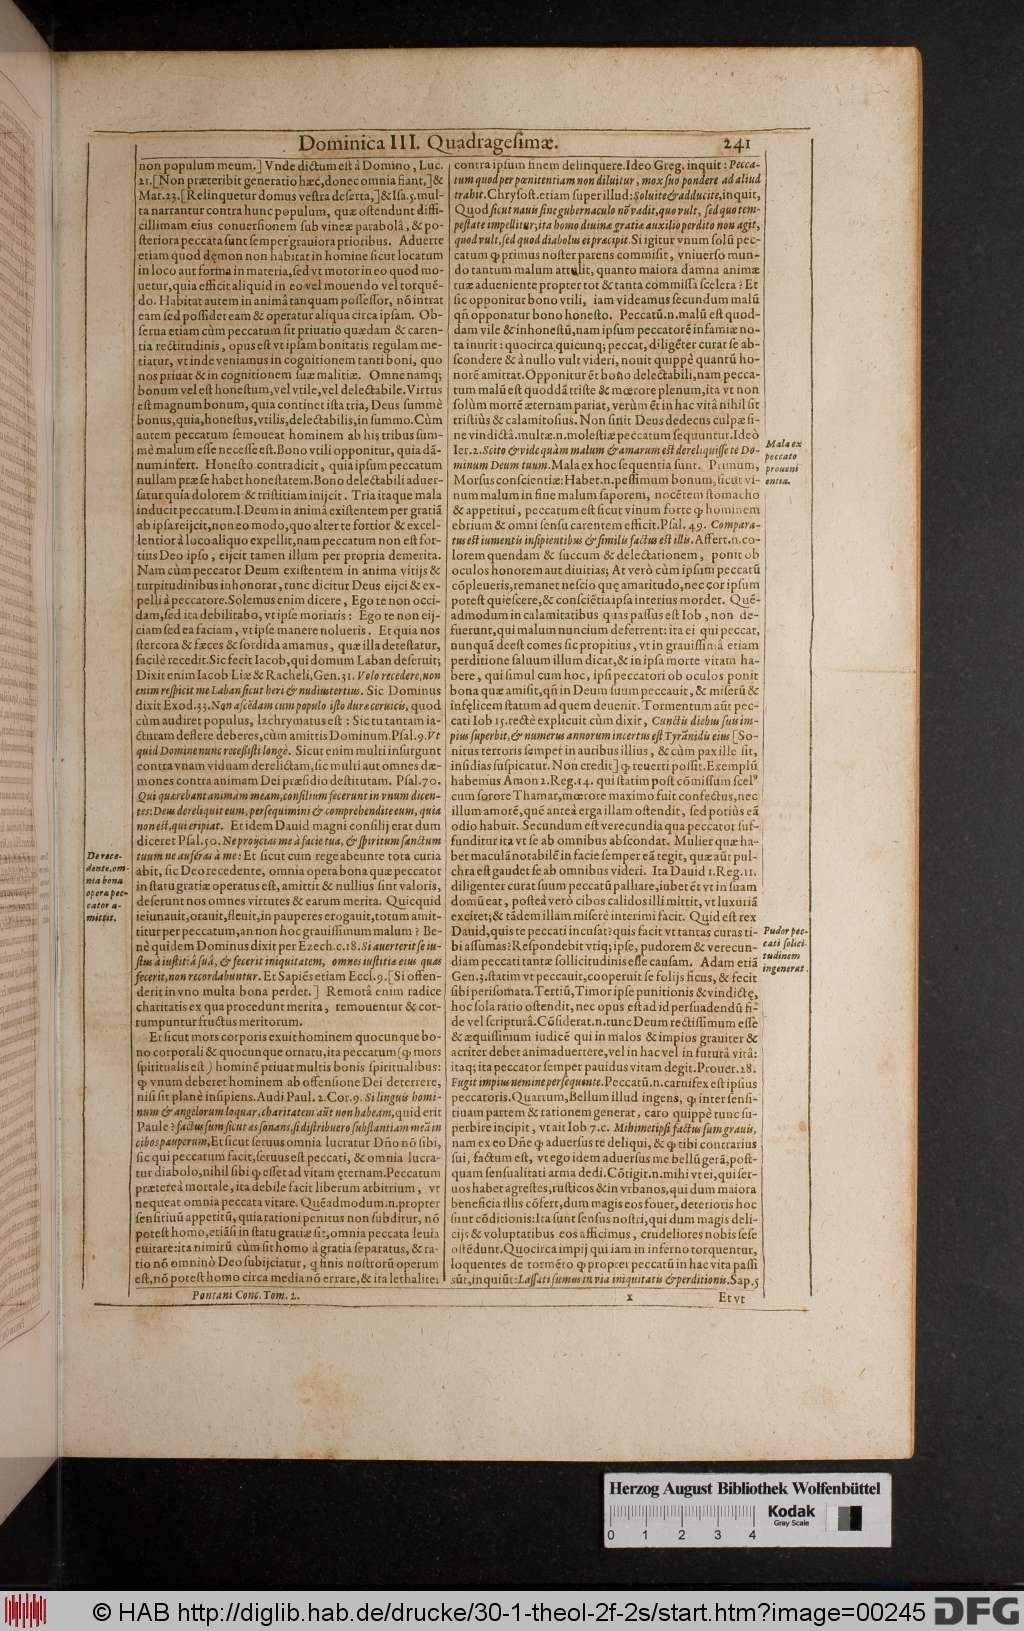 Dominica III. Quadragesimæ.
241
non populum meum.] Vnde dictum est à Domino, Luc.
21. [Non præteribit generatio hæc, donec omnia fiant,] &
Mat. 23. [Relinquetur domus vestra deserta,] & Isa. 5. mul-
ta narrantur contra hunc populum, quæ ostendunt diffi-
cillimam eius conuersionem sub vineæ parabolâ, & po-
steriora peccata sunt semper grauiora prioribus. Aduerte
etiam quod dęmon non habitat in homine sicut locatum
in loco aut forma in materia, sed vt motor in eo quod mo-
uetur, quia efficit aliquid in eo vel mouendo vel torquē-
do. Habitat autem in animâ tanquam possessor, nō intrat
eam sed possidet eam & operatur aliqua circa ipsam. Ob-
serua etiam cùm peccatum sit priuatio quædam & caren-
tia rectitudinis, opus est vt ipsam bonitatis regulam me-
tiatur, vt inde veniamus in cognitionem tanti boni, quo
nos priuat & in cognitionem suæ malitiæ. Omne namq;
bonum vel est honestum, vel vtile, vel delectabile. Virtus
est magnum bonum, quia continet ista tria, Deus summè
bonus, quia, honestus, vtilis, delectabilis, in summo. Cùm
autem peccatum semoueat hominem ab his tribus sum-
mè malum esse necesse est. Bono vtili opponitur, quia dā-
num infert. Honesto contradicit, quia ipsum peccatum
nullam præ se habet honestatem. Bono delectabili aduer-
satur quia dolorem & tristitiam inijcit. Tria itaque mala
inducit peccatum. I. Deum in animâ existentem per gratiā
ab ipsa reijcit, non eo modo, quo alter te fortior & excel-
lentior à loco aliquo expellit, nam peccatum non est for-
tius Deo ipso, eijcit tamen illum per propria demerita.
Nam cùm peccator Deum existentem in anima vitijs &
turpitudinibus inhonorat, tunc dicitur Deus eijci & ex-
pelli à peccatore. Solemus enim dicere, Ego te non occi-
dam, sed ita debilitabo, vt ipse moriaris: Ego te non eij-
ciam sed ea faciam, vt ipse manere nolueris. Et quia nos
stercora & fæces & sordida amamus, quæ illa detestatur,
facilè recedit. Sic fecit Iacob, qui domum Laban deseruit;
Dixit enim Iacob Liæ & Racheli, Gen. 31. Volo recedere, non
enim respicit me Laban sicut heri & nudiustertius. Sic Dominus
dixit Exod. 33. Non ascēdam cum populo isto duræ ceruicis, quod
cùm audiret populus, lachrymatus est: Sic tu tantam ia-
cturam deflere deberes, cùm amittis Dominum. Psal. 9. Vt
quid Domine nunc recessisti longè. Sicut enim multi insurgunt
contra vnam viduam derelictam, sic multi aut omnes dæ-
mones contra animam Dei præsidio destitutam. Psal. 70.
Qui quærebant animam meam, consilium fecerunt in vnum dicen-
tes: Deus dereliquit eum, persequimini & comprehendite eum, quia
non est, qui eripiat. Et idem Dauid magni consilij erat dum
diceret Psal. 50. Ne proijcias me à facie tua, & spiritum sanctum
tuum ne auferas à me: Et sicut cum rege abeunte tota curia
abit, sic Deo recedente, omnia opera bona quæ peccator
in statu gratiæ operatus est, amittit & nullius sunt valoris,
deserunt nos omnes virtutes & earum merita. Quicquid
ieiunauit, orauit, fleuit, in pauperes erogauit, totum amit-
titur per peccatum, an non hoc grauissimum malum? Be-
nè quidem Dominus dixit per Ezech. c. 18. Si auerterit se iu-
stus à iustitiâ suâ, & fecerit iniquitatem, omnes iustitiæ eius quas
fecerit, non recordabuntur. Et Sapiēs etiam Eccl. 9. [Si offen-
derit in vno multa bona perdet.] Remotâ enim radice
charitatis ex qua procedunt merita, remouentur & cor-
rumpuntur fructus meritorum.
Et sicut mors corporis exuit hominem quocunque bo-
no corporali & quocunque ornatu, ita peccatum (ꝙ mors
spiritualis est) hominē priuat multis bonis spiritualibus:
ꝙ vnum deberet hominem ab offensione Dei deterrere,
nisi sit planè insipiens. Audi Paul. 2. Cor. 9. Si linguis homi-
num & angelorum loquar, charitatem aūt non habeam, quid erit
Paule? factus sum sicut æs sonans, si distribuero substantiam meā in
cibos pauperum, Et sicut seruus omnia lucratur Dño nō sibi,
sic qui peccatum facit, seruus est peccati, & omnia lucra-
tur diabolo, nihil sibi ꝙ esset ad vitam ęternam. Peccatum
prætereà mortale, ita debile facit liberum arbitrium, vt
nequeat omnia peccata vitare. Quēadmodum. n. propter
sensitiuū appetitū, quia rationi penitus non subditur, nō
potest homo, etiāsi in statu gratiæ sit, omnia peccata leuia
euitare: ita nimirū cùm sit homo à gratia separatus, & ra-
tio nō omninò Deo subijciatur, q finis nostrorū operum
est, nō potest homo circa media nō errare, & ita lethalitei
De rece-
dente, om-
nia bona
opera pec-
cator a-
mittit.
contra ipsum finem delinquere. Ideo Greg. inquit: Pecca-
tum quod per pœnitentiam non diluitur, mox suo pondere ad aliud
trahit. Chrysost. etiam super illud: Soluite & adducite, inquit,
Quod sicut nauis sine gubernaculo nō vadit, quo vult, sed quo tem-
pestate impellitur; ita homo diuinæ gratiæ auxilio perdito non agit,
quod vult, sed quod diabolus ei præcipit. Si igitur vnum solū pec-
catum ꝙ primus noster parens commisit, vniuerso mun-
do tantum malum attulit, quanto maiora damna animæ
tuæ adueniente propter tot & tanta commissa scelera? Et
sic opponitur bono vtili, iam videamus secundum malū
qñ opponatur bono honesto. Peccatū. n. malū est quod-
dam vile & inhonestū, nam ipsum peccatorē infamiæ no-
ta inurit: quocirca quicunq; peccat, diligēter curat se ab-
scondere & à nullo vult videri, nouit quippè quantū ho-
norē amittat. Opponitur ēt bono delectabili, nam pecca-
tum malū est quoddā triste & mœrore plenum, ita vt non
solùm mortē æternam pariat, verùm ēt in hac vitâ nihil sit
tristiùs & calamitosius. Non sinit Deus dedecus culpæ si-
ne vindictâ. multæ. n. molestiæ peccatum sequuntur. Ideò
Ier. 2. Scito & vide quàm malum & amarum est dereliquisse te Do-
minum Deum tuum. Mala ex hoc sequentia sunt. Primum,
Morsus conscientiæ: Habet. n. pessimum bonum, sicut vi-
num malum in fine malum saporem, nocētem stomacho
& appetitui, peccatum est sicut vinum forte ꝙ hominem
ebrium & omni sensu carentem efficit. Psal. 49. Compara-
tus est iumentis insipientibus & similis factus est illis. Affert. n. co-
lorem quendam & succum & delectationem, ponit ob
oculos honorem aut diuitias; At verò cùm ipsum peccatū
cōpleueris, remanet nescio quę amaritudo, nec cor ipsum
potest quiescere, & consciētia ipsa interius mordet. Quē-
admodum in calamitatibus quas passus est Iob, non de-
fuerunt, qui malum nuncium deferrent: ita ei qui peccat,
nunquā deest comes sic propitius, vt in grauissimâ etiam
perditione saluum illum dicat, & in ipsa morte vitam ha-
bere, qui simul cum hoc, ipsi peccatori ob oculos ponit
bona quæ amisit, qñ in Deum suum peccauit, & miserū &
infęlicem statum ad quem deuenit. Tormentum aūt pec-
cati Iob 15. rectè explicuit cùm dixit, Cunctis diebus suis im-
pius superbit, & numerus annorum incertus est Tyrānidis eius [So-
nitus terroris semper in auribus illius, & cùm pax ille sit,
insidias suspicatur. Non credit] ꝙ reuerti possit. Exemplū
habemus Amon 2. Reg. 14. qui statim post cōmissum scelꝰ
cum sorore Thamar, mœrore maximo fuit confectus, nec
illum amorē, quē anteà erga illam ostendit, sed potiùs eā
odio habuit. Secundum est verecundia qua peccator suf-
funditur ita vt se ab omnibus abscondat. Mulier quæ ha-
bet maculā notabilē in facie semper eā tegit, quæ aūt pul-
chra est gaudet se ab omnibus videri. Ita Dauid 1. Reg. 11.
diligenter curat suum peccatū palliare, iubet ēt vt in suam
domū eat, posteà verò cibos calidos illi mittit, vt luxuriā
excitet; & tādem illam miserè interimi facit. Quid est rex
Dauid, quis te peccati incusat? quis facit vt tantas curas ti-
bi assumas? Respondebit vtiq; ipse, pudorem & verecun-
diam peccati tantæ sollicitudinis esse causam. Adam etiā
Gen. 3. statim vt peccauit, cooperuit se folijs ficus, & fecit
sibi perisomata. Tertiū, Timor ipse punitionis & vindictę,
hoc sola ratio ostendit, nec opus est ad id persuadendū fi-
de vel scripturâ. Cōsiderat. n. tunc Deum rectissimum esse
& æquissimum iudicē qui in malos & impios grauiter &
acriter debet animaduertere, vel in hac vel in futurâ vitâ:
itaq; ita peccator semper pauidus vitam degit. Prouer. 28.
Fugit impius nemine persequente. Peccatū. n. carnifex est ipsius
peccatoris. Quartum, Bellum illud ingens, ꝙ inter sensi-
tiuam partem & rationem generat, caro quippè tunc su-
perbire incipit, vt ait Iob 7. c. Mihimetipsi factus sum grauis,
nam ex eo Dñe ꝙ aduersus te deliqui, & ꝙ tibi contrarius
fui, factum est, vt ego idem aduersus me bellū gerā, post-
quam sensualitati arma dedi. Cōtigit. n. mihi vt ei, qui ser-
uos habet agrestes, rusticos & in vrbanos, qui dum maiora
beneficia illis cōfert, dum magis eos fouet, deterioris hoc
sunt cōditionis: Ita sunt sensus nostri, qui dum magis deli-
cijs & voluptatibus eos afficimus, crudeliores nobis sese
ostēdunt. Quocirca impij qui iam in inferno torquentur,
loquentes de tormēto ꝙ propter peccatū in hac vita passi
sūt, inquiūt: Lassati sumus in via iniquitatis & perditionis. Sap. 5
Mala ex
peccato
proueni
entia.
Pudor pec-
cati solici-
tudinem
ingenerat.
Pontani Conc. Tom. 2.
x
Et vt
Herzog August Bibliothek Wolfenbüttel
Kodak
Gray Scale
0 1 2 3 4
© HAB http://diglib.hab.de/drucke/30-1-theol-2f-2s/start.htm?image=00245
DFG